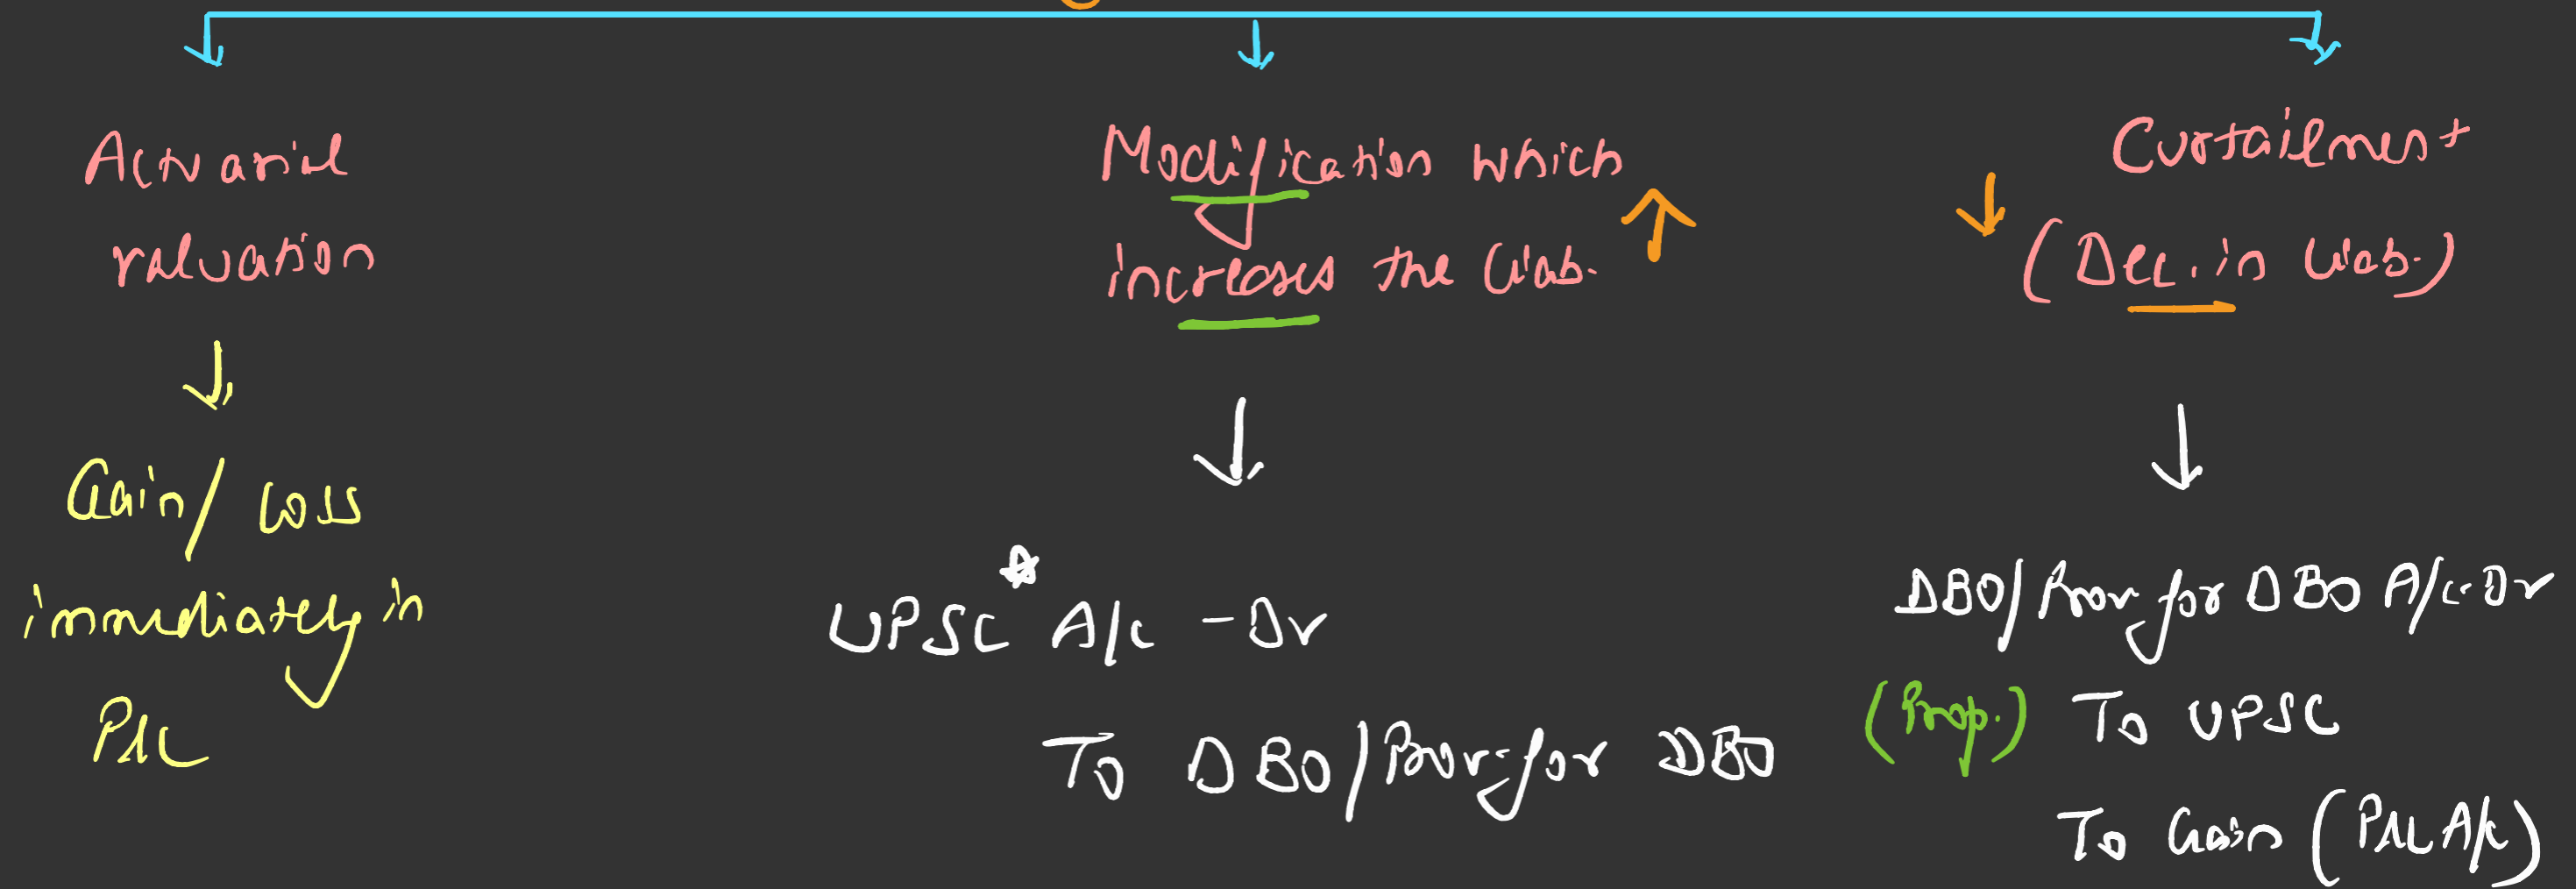 Actuarial
valuation
Gain/Loss
immediately in
P&L
Modification which
increases the Liab.
UPSC* A/c - Dr
To DBO/Prov. for DBO
Curtailment
(Dec. in Liab.)
DBO/Prov for DBO A/c-Dr
(Prop.) To UPSC
To Gain (P&L A/c)